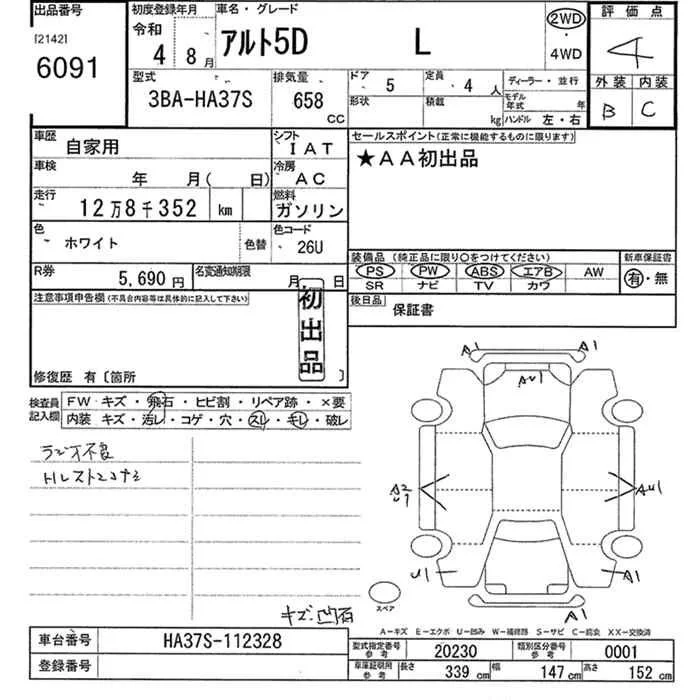 出品番号
[2142]
6091
初度登録年月
令和
4 8月
車名・グレード
アルト5D L
2WD
・
4WD
評価点
4
外装 内装
B C
型式
3BA-HA37S
排気量
658
CC
ドア 5
定員 4 人
形状
積載 kg
ディーラー・並行
モデル年式 年
ハンドル 左・右
車歴
自家用
シフト
IAT
車検
年 月( 日)
冷房
AC
走行
12万8千352 km
燃料
ガソリン
色
ホワイト
色替
色コード
26U
R券
5,690円
名変通知期限
月 日
セールスポイント(正常に機能するものに限ります)
★AA初出品
装備品(純正品に限り○をつけてください)
新車保証書
PS PW ABS エアB AW
SR ナビ TV カワ
有・無
後日品
保証書
注意事項申告欄(不具合内容等は具体的に記入して下さい)
初出品
修復歴 有〔箇所
検査員記入欄
FW キズ・飛石・ヒビ割・リペア跡・×要
内装 キズ・汚レ・コゲ・穴・スレ・キレ・破レ
ラジオ不良
A1 A1
AU1
A2
U1
AU1
U1 A1
A1
スペア
キズ 凹 有
A-キズ E-エクボ U-凹み W-補修跡 S-サビ C-腐食 XX-交換済
車台番号
HA37S-112328
登録番号
型式指定番号
参考
20230
類別区分番号
参考
0001
車庫証明用
参考
長さ 339 cm 幅 147 cm 高さ 152 cm